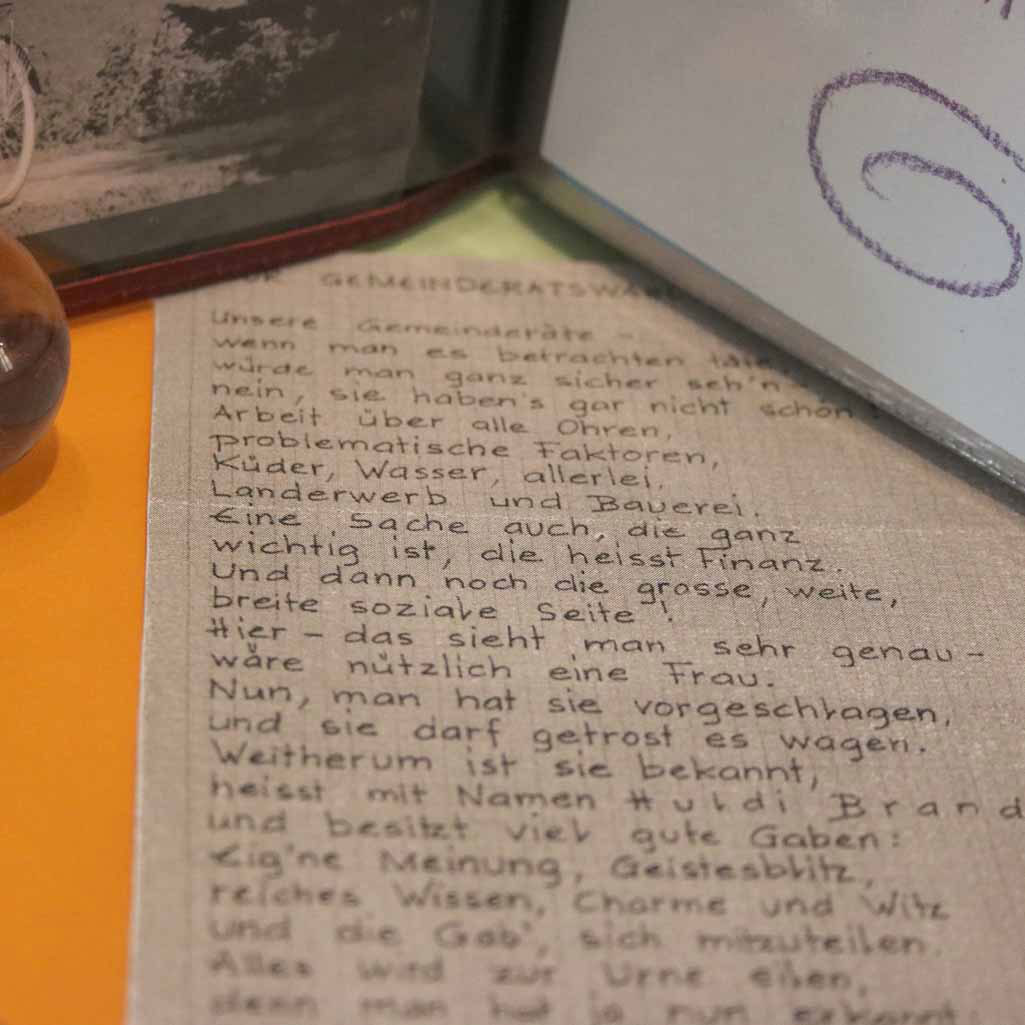 GEMEINDERATSWA
Unsere Gemeinderäte –
wenn man es betrachten täte
würde man ganz sicher seh'n –
nein, sie haben's gar nicht schön!
Arbeit über alle Ohren,
problematische Faktoren,
Küder, Wasser, allerlei,
Landerwerb und Bauerei.
Eine Sache auch, die ganz
wichtig ist, die heisst Finanz.
Und dann noch die grosse, weite,
breite soziale Seite!
Hier – das sieht man sehr genau –
wäre nützlich eine Frau.
Nun, man hat sie vorgeschlagen,
und sie darf getrost es wagen.
Weitherum ist sie bekannt,
heisst mit Namen Huldi Brand
und besitzt viel gute Gaben:
Eig'ne Meinung, Geistesblitz,
reiches Wissen, Charme und Witz
und die Gab', sich mitzuteilen.
Alles wird zur Urne eilen,
denn man hat ja nun erkannt: